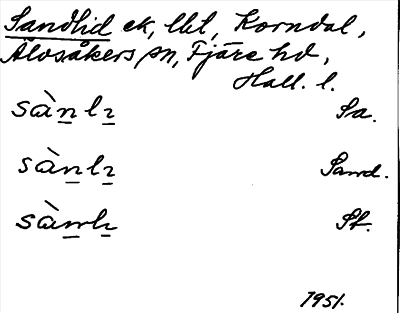 Sandlid ek, lht, Korndal,
Älvsåkers sn, Fjäre hd,
Hall. l.
sànlɩ Sa.
sànlɩ Sand.
sànlɩ St.
1951.